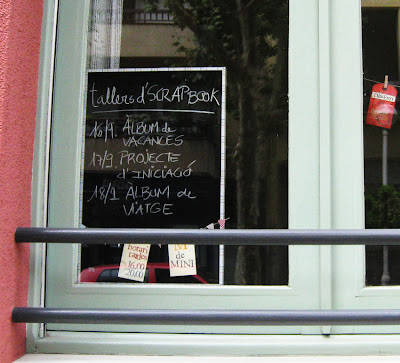 tallers d'SCRAPBOOK
16/9. ÀLBUM de
VACANCES
17/9. PROJECTE
d'INICIACIÓ
18/9 ÀLBUM de
VIATGE
horari
tardes
16:00
20:00
M
de
MINI